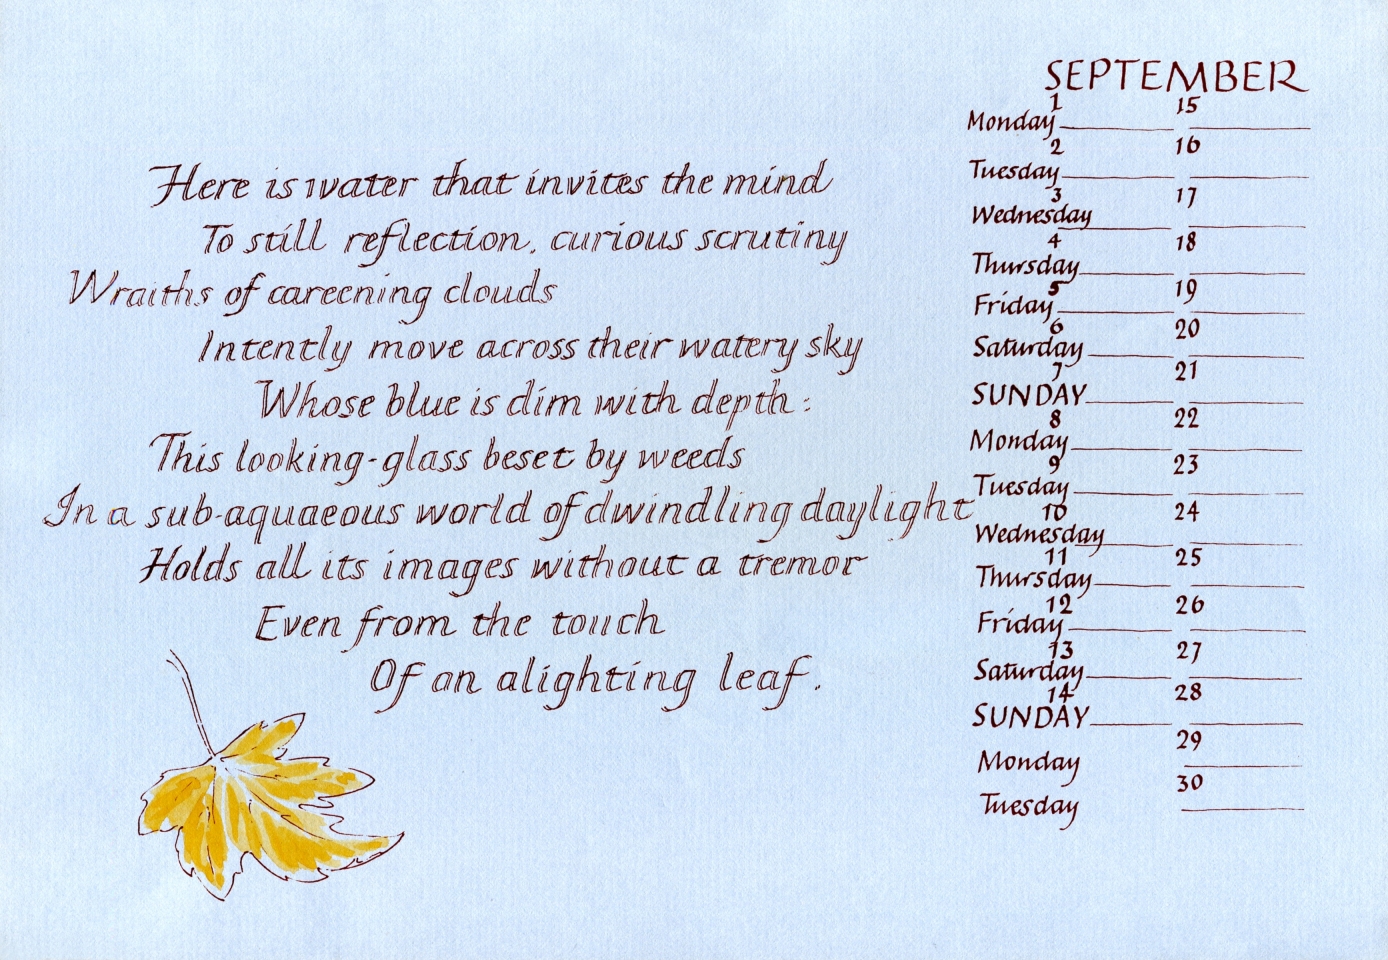 Here is water that invites the mind
To still reflection, curious scrutiny
Wraiths of careening clouds
Intently move across their watery sky
Whose blue is dim with depth:
This looking-glass beset by weeds
In a sub-aquaeous world of dwindling daylight
Holds all its images without a tremor
Even from the touch
Of an alighting leaf.
SEPTEMBER
1 15
Monday
2 16
Tuesday
3 17
Wednesday
4 18
Thursday
5 19
Friday
6 20
Saturday
7 21
SUNDAY
8 22
Monday
9 23
Tuesday
10 24
Wednesday
11 25
Thursday
12 26
Friday
13 27
Saturday
14 28
SUNDAY
29
Monday
30
Tuesday